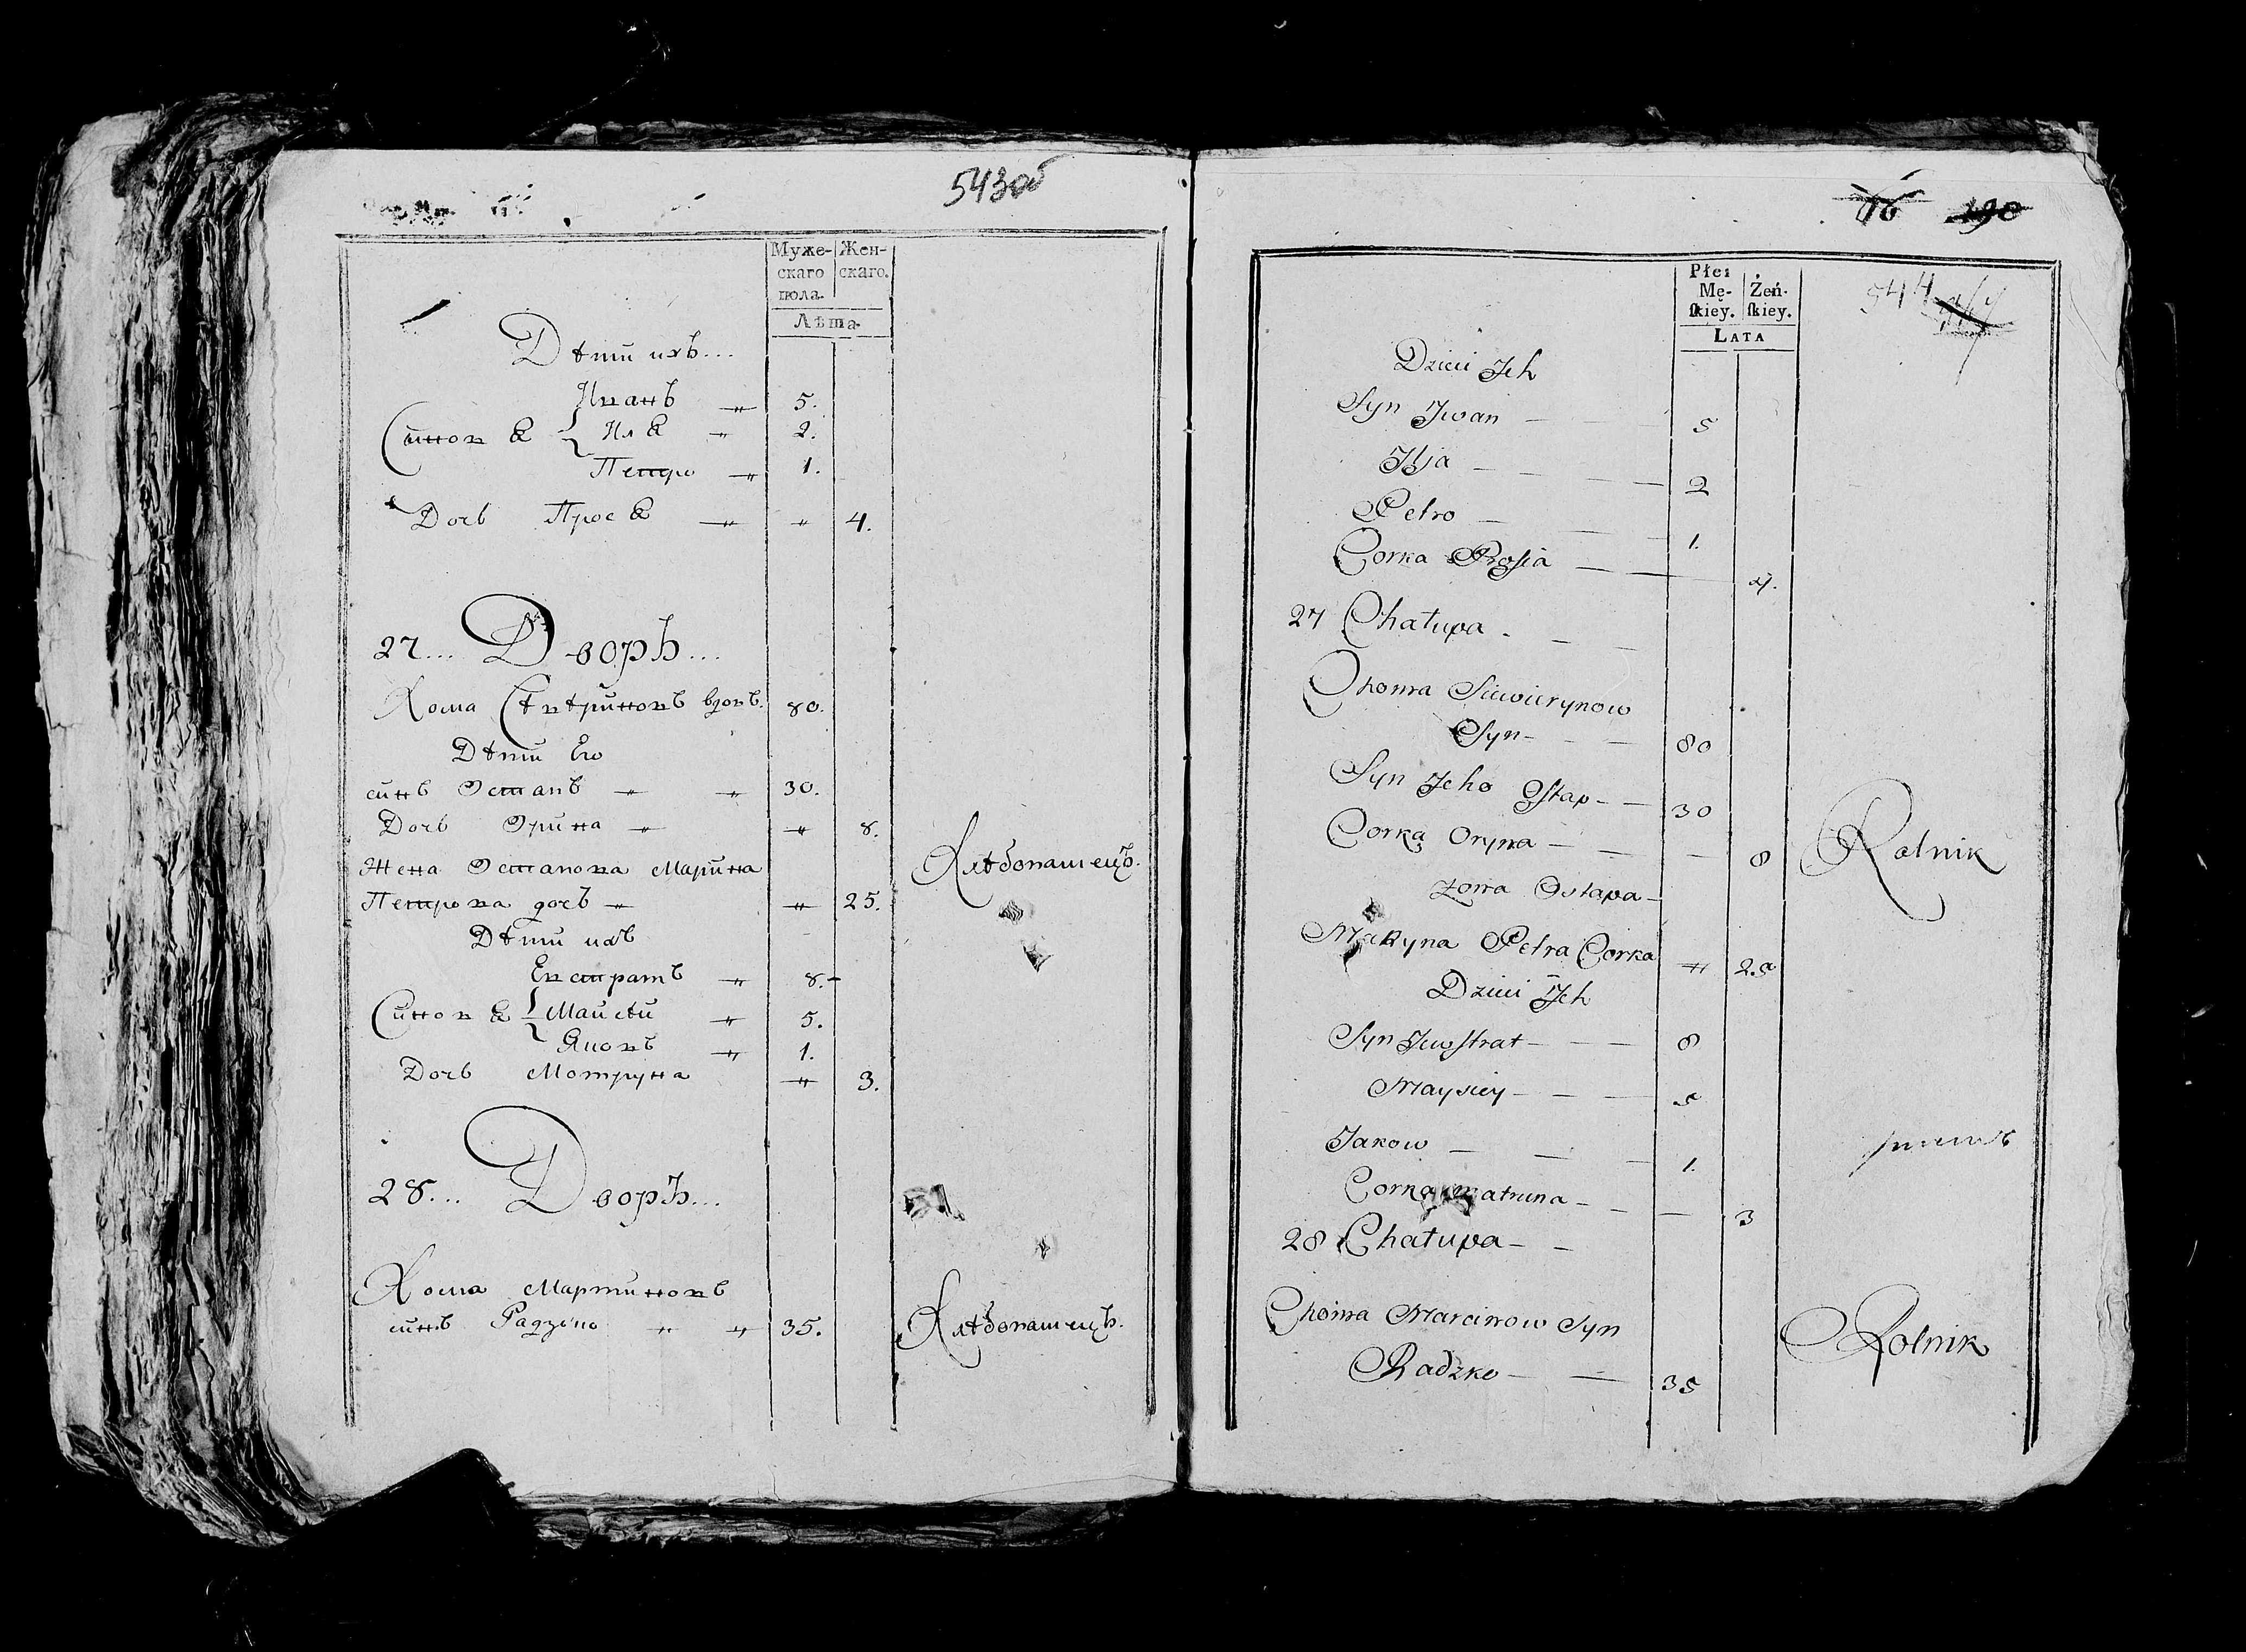 543об
Муже- Жен-
скаго скаго.
пола.
Лѣта.
Дѣти ихъ...
Иванъ „ 5.
Синовя Иля „ 2.
Петро „ 1.
Дочь Прося „ „ 4.
27... Дворъ...
Хома Сѣвѣриновъ вдовъ. 80.
Дѣти Его
синъ Остапъ „ „ 30.
Дочь Орина „ „ 8.
Жена Остапова Марина Хлѣбопашецъ.
Петрова дочъ „ „ 25.
Дѣти ихъ
Евстратъ „ 8.
Синовя Майсѣй „ 5.
Яковъ „ 1.
Дочь Мотруна „ 3.
28... Дворъ...
Хома Мартиновъ
синъ Радзко „ „ 35. Хлѣбопашецъ.
16 190
Płei
Mę- Żeń-
ſkiey. ſkiey.
LATA
544
Dzieci Jch
Syn Jwan 5
Jlja 2
Petro 1.
Corka Prosia 4.
27 Chałupa
Choma Siewierynow
Syn 80
Syn Jeho Ostap 30
Corką Oryna 8 Rolnik
żona Ostapa
Maryna Petra Corka „ 25
Dzieci Jch
Syn Jewstrat 8
Maysiey 5
Jakow 1.
Corka Matruna 3
28 Chałupa
Choma Marcinow Syn
Radzko 35 Rolnik